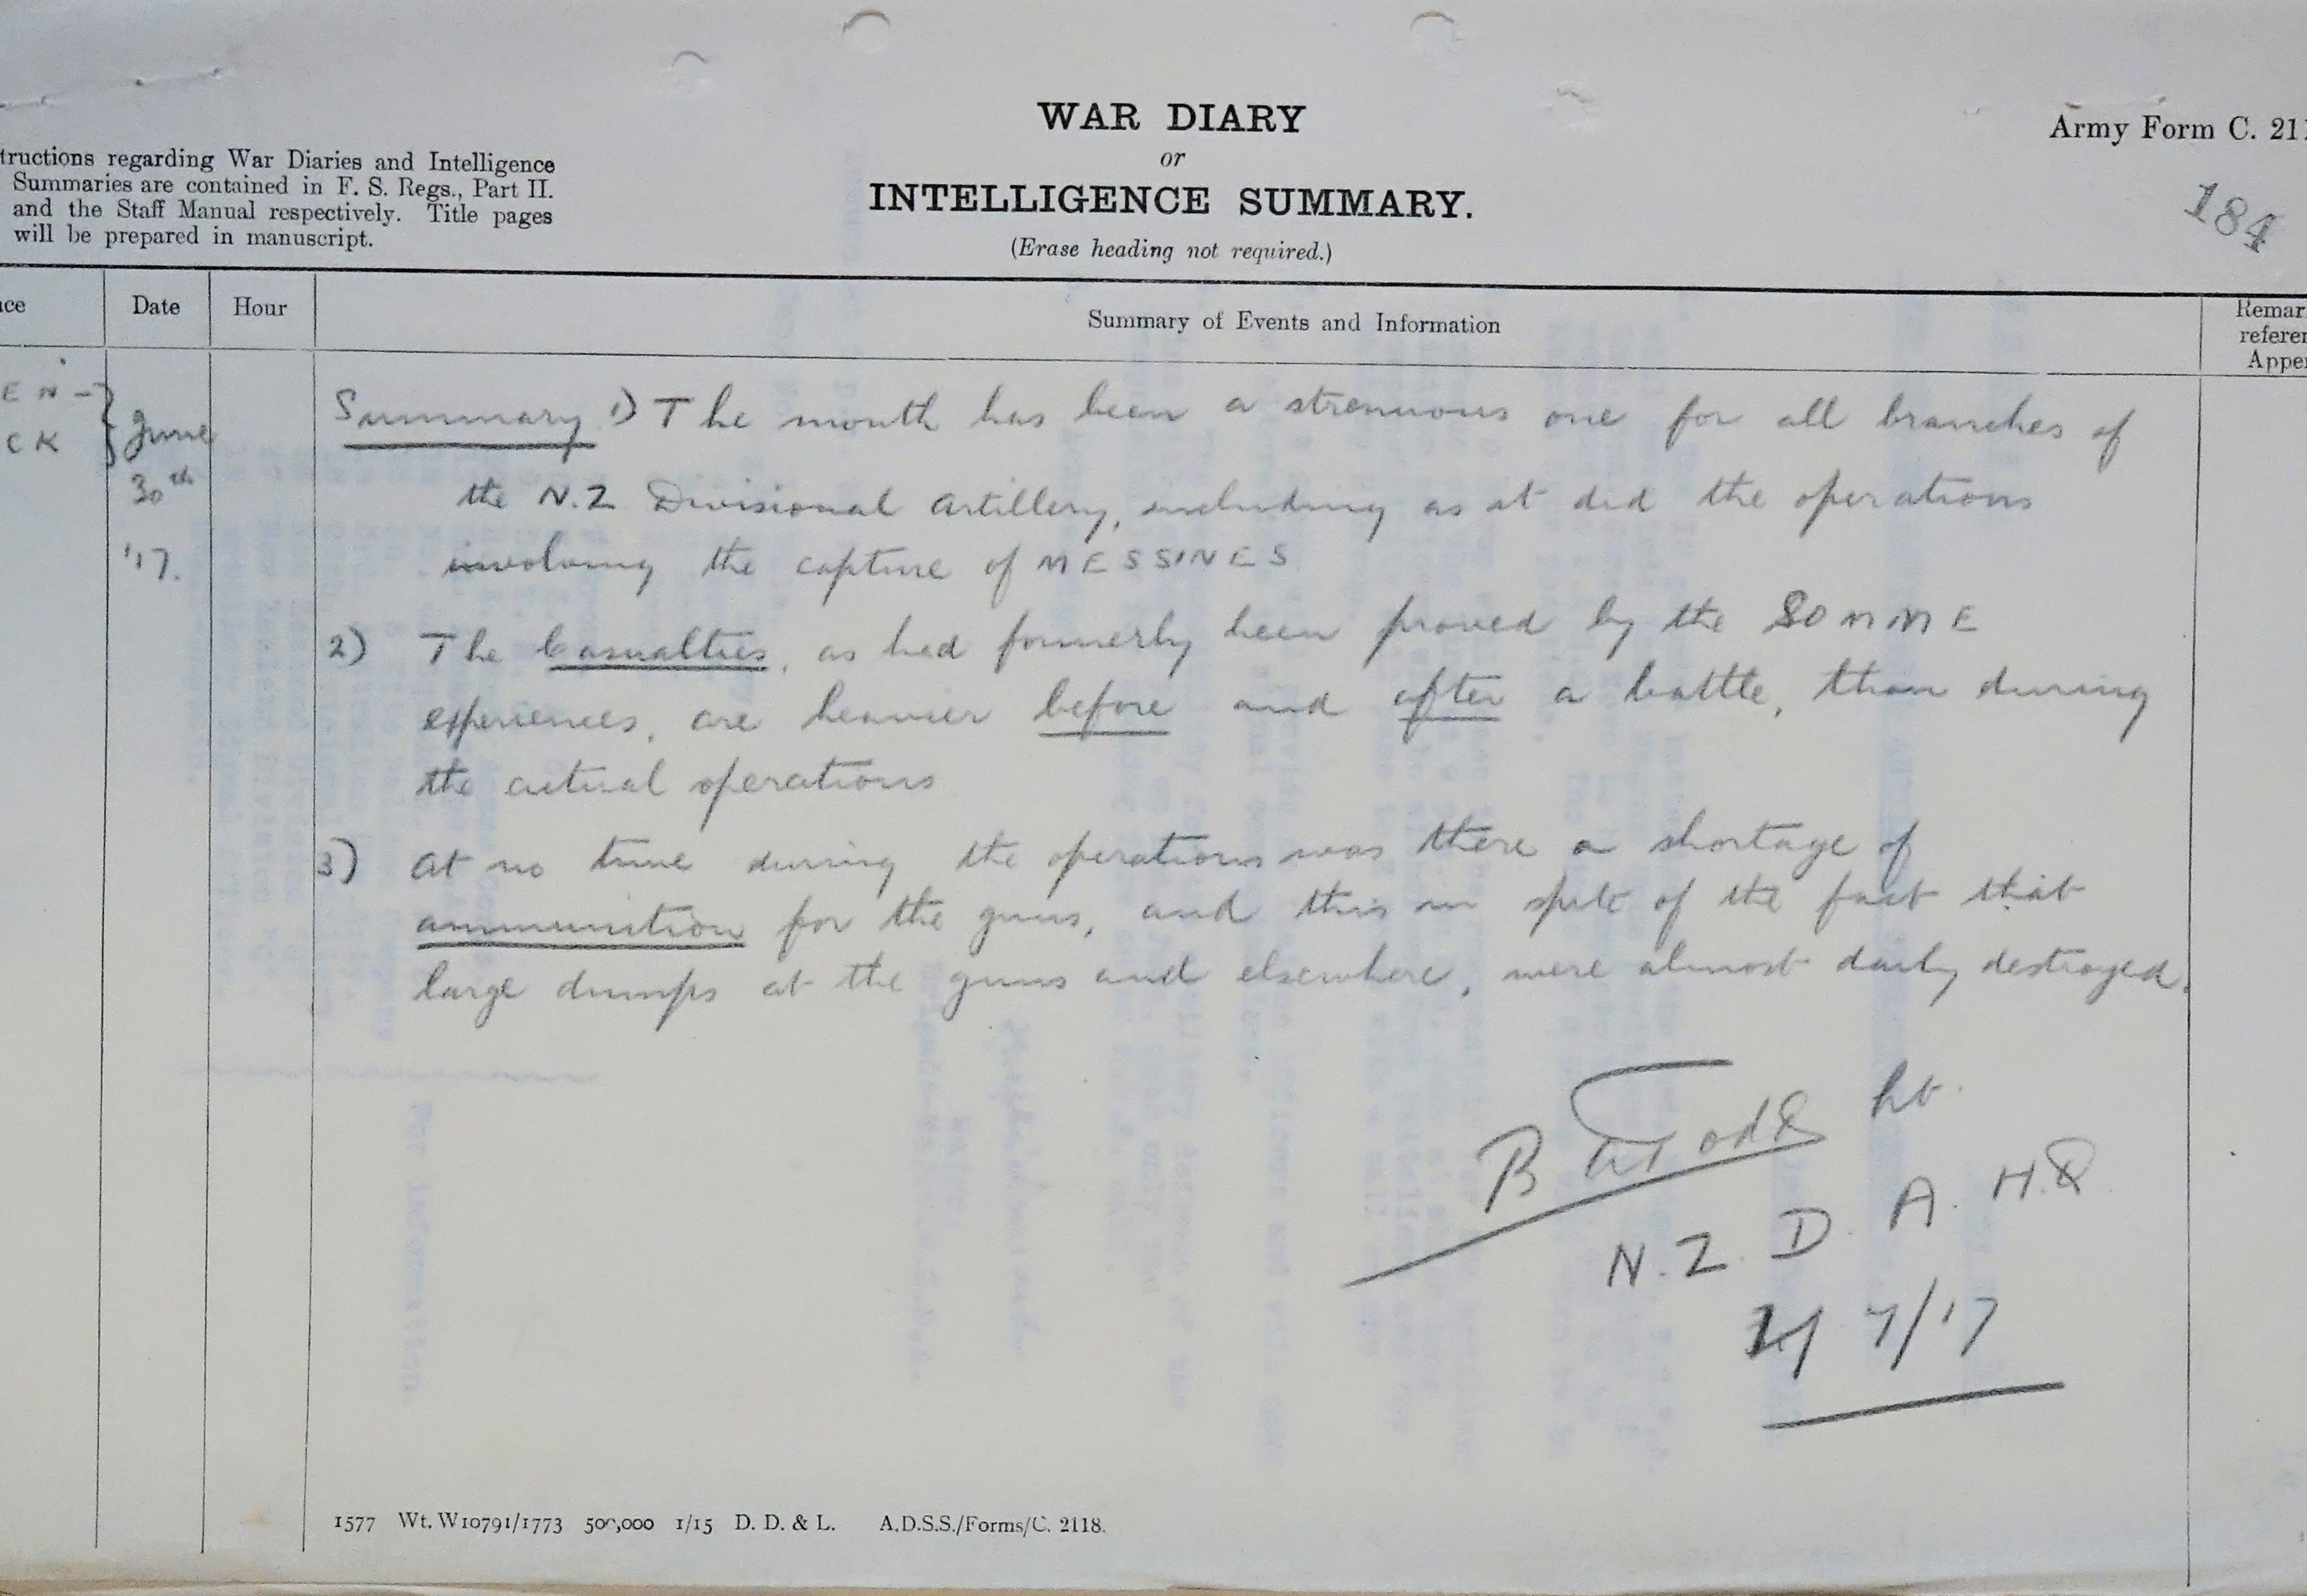 WAR DIARY
or
INTELLIGENCE SUMMARY.
(Erase heading not required.)
Army Form C. 211
184
tructions regarding War Diaries and Intelligence
Summaries are contained in F. S. Regs., Part II.
and the Staff Manual respectively. Title pages
will be prepared in manuscript.
ce
Date
Hour
Summary of Events and Information
Remar
referen
Appe
EN-
CK
June
30th
'17.
Summary 1) The month has been a strenuous one for all branches of
the N.Z Divisional Artillery, including as it did the operations
involving the capture of MESSINES
2) The Casualties, as had formerly been proved by the SOMME
experiences, are heavier before and after a battle, than during
the actual operations
3) At no time during the operations was there a shortage of
ammunition for the guns, and this in spite of the fact that
large dumps at the guns and elsewhere, were almost daily destroyed.
Lt.
N.Z. D. A. H.Q
7/17
1577 Wt. W10791/1773 500,000 1/15 D. D. & L. A.D.S.S./Forms/C. 2118.